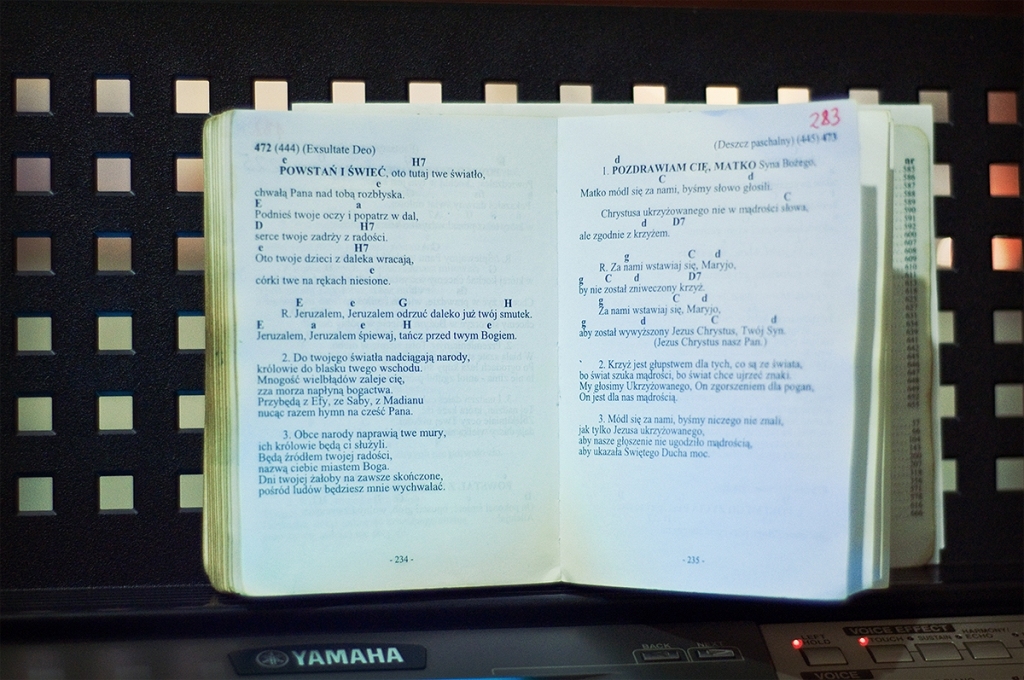 472 (444) (Exsultate Deo)
e H7
POWSTAŃ I ŚWIEĆ, oto tutaj twe światło,
e
chwałą Pana nad tobą rozbłyska.
E a
Podnieś twoje oczy i popatrz w dal,
D H7
serce twoje zadrży z radości.
e H7
Oto twoje dzieci z daleka wracają,
e
córki twe na rękach niesione.
E e G H
R. Jeruzalem, Jeruzalem odrzuć daleko już twój smutek.
E a e H e
Jeruzalem, Jeruzalem śpiewaj, tańcz przed twym Bogiem.
2. Do twojego światła nadciągają narody,
królowie do blasku twego wschodu.
Mnogość wielbłądów zaleje cię,
zza morza napłyną bogactwa.
Przybędą z Efy, ze Saby, z Madianu
nucąc razem hymn na cześć Pana.
3. Obce narody naprawią twe mury,
ich królowie będą ci służyli.
Będą źródłem twojej radości,
nazwą ciebie miastem Boga.
Dni twojej żałoby na zawsze skończone,
pośród ludów będziesz mnie wychwalać.
- 234 -
283
(Deszcz paschalny) (445) 473
d
1. POZDRAWIAM CIĘ, MATKO Syna Bożego,
C d
Matko módl się za nami, byśmy słowo głosili.
C
Chrystusa ukrzyżowanego nie w mądrości słowa,
d D7
ale zgodnie z krzyżem.
g C d
R. Za nami wstawiaj się, Maryjo,
g C d D7
by nie został zniweczony krzyż.
g C d
Za nami wstawiaj się, Maryjo,
g d C d
aby został wywyższony Jezus Chrystus, Twój Syn.
(Jezus Chrystus nasz Pan.)
2. Krzyż jest głupstwem dla tych, co są ze świata,
bo świat szuka mądrości, bo świat chce ujrzeć znaki.
My głosimy Ukrzyżowanego, On zgorszeniem dla pogan,
On jest dla nas mądrością.
3. Módl się za nami, byśmy niczego nie znali,
jak tylko Jezusa ukrzyżowanego,
aby nasze głoszenie nie ugodziło mądrością,
aby ukazała Świętego Ducha moc.
- 235 -
nr
585
586
587
588
589
590
YAMAHA
BACK
LEFT
HOLD
VOICE EFFECT
TOUCH SUSTAIN HARMONY/
ECHO
VOICE